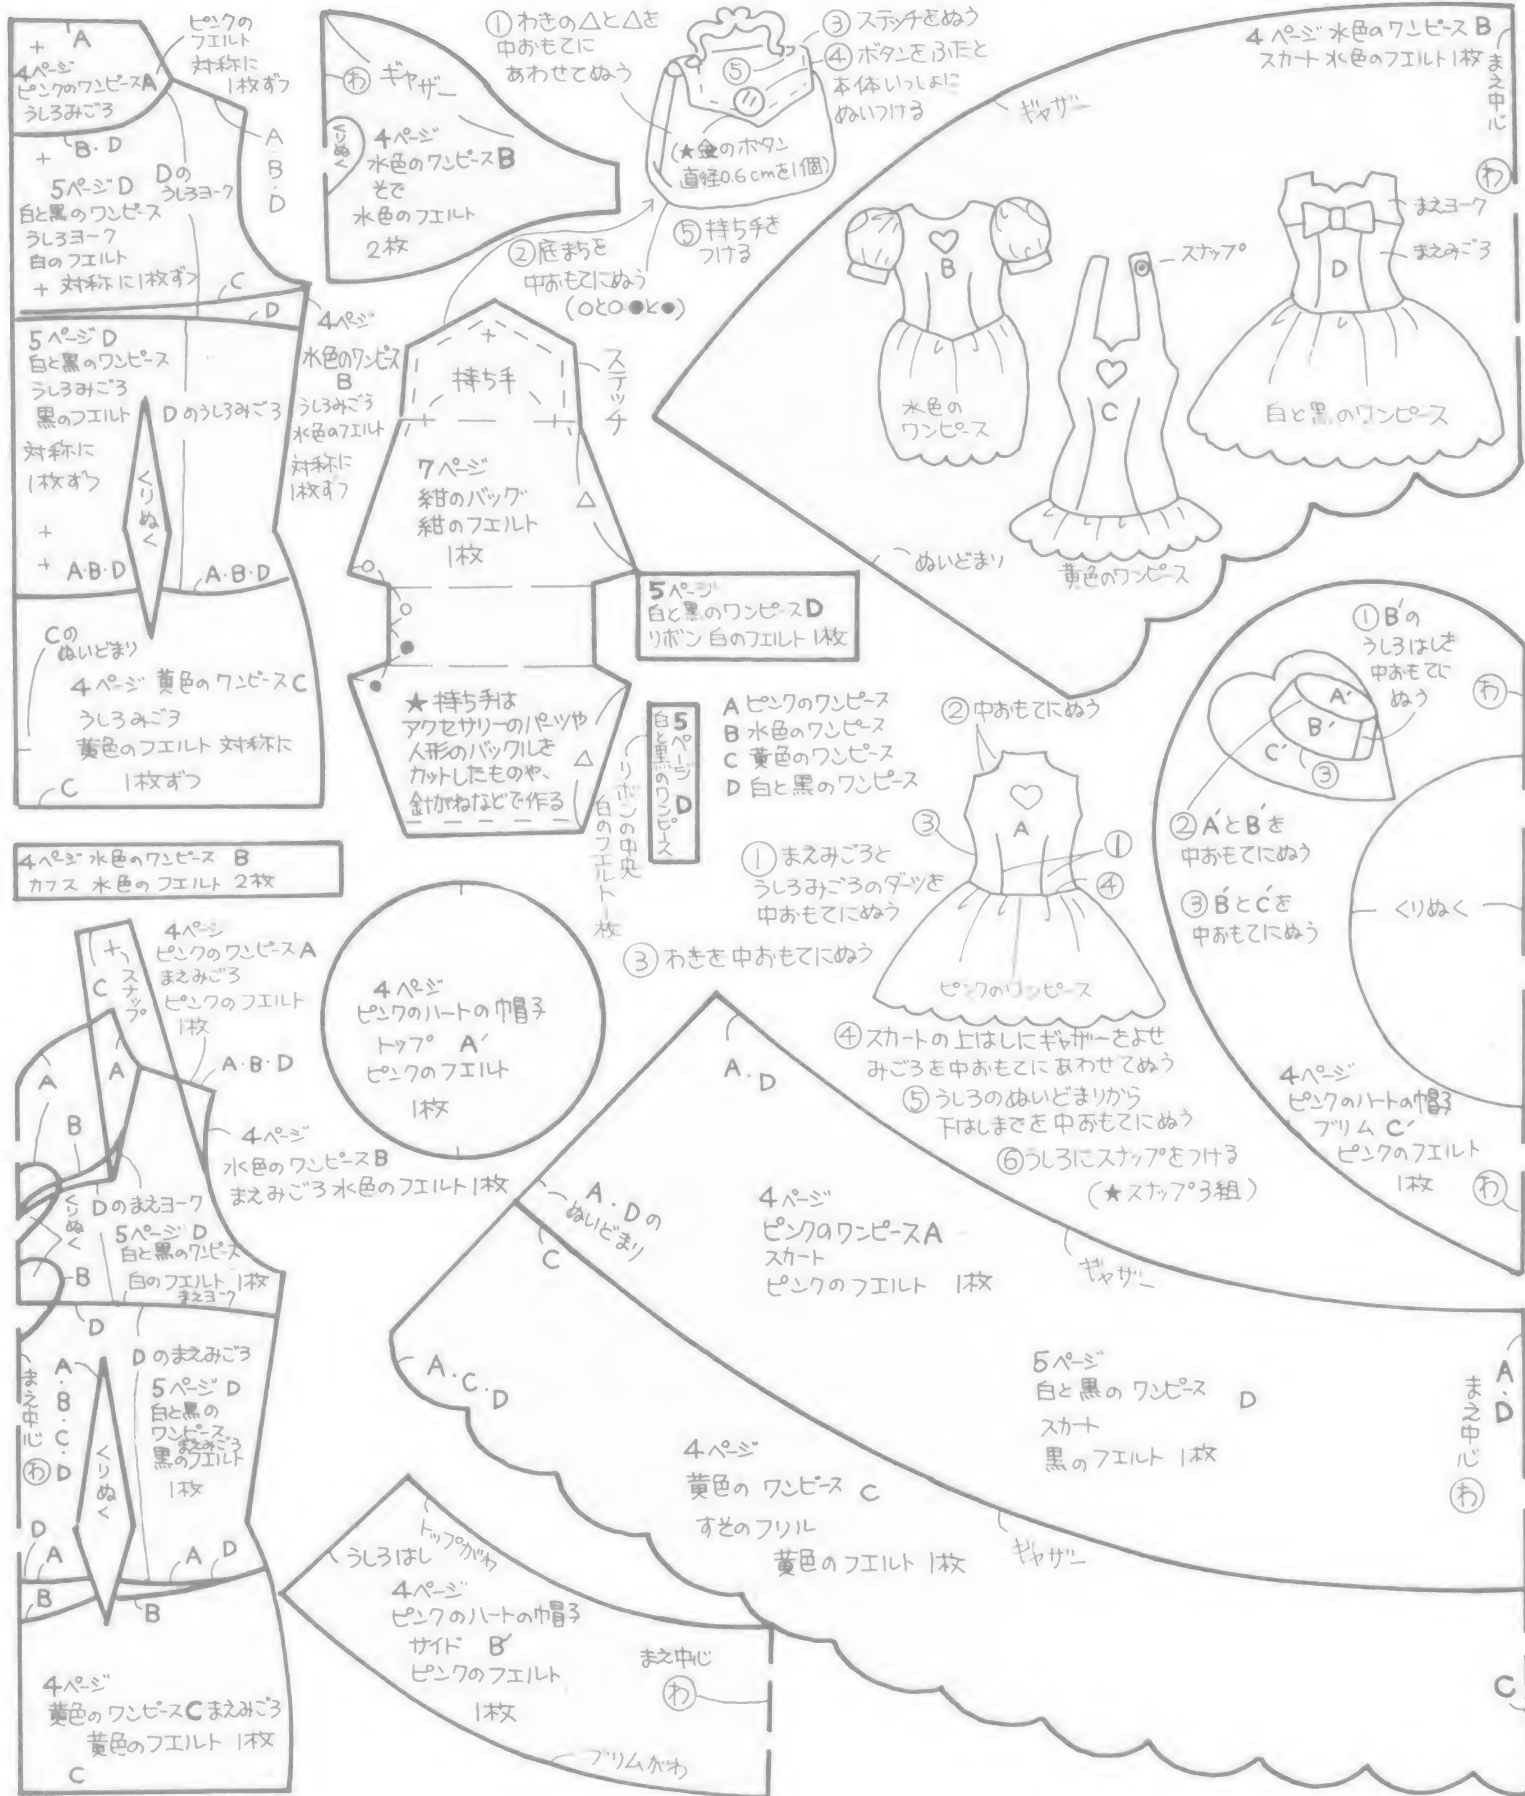 A
ピンクの
フエルト
対称に
1枚ずつ
4ページ
ピンクのワンピースA
うしろみごろ
B・D
A・B・D
5ページ D
白と黒のワンピース
うしろヨーク
白のフエルト
対称に1枚ずつ
Dの
うしろヨーク
C
D
5ページ D
白と黒のワンピース
うしろみごろ
黒のフエルト
対称に
1枚ずつ
Dのうしろみごろ
くりぬく
A・B・D
A・B・D
4ページ
水色のワンピース
B
うしろみごろ
水色のフエルト
対称に
1枚ずつ
Cの
ぬいどまり
4ページ 黄色のワンピースC
うしろみごろ
黄色のフエルト 対称に
1枚ずつ
C
わ
ギャザー
くりぬく
4ページ
水色のワンピースB
そで
水色のフエルト
2枚
①わきの△と△を
中おもてに
あわせてぬう
②底まちを
中おもてにぬう
(○と○●と●)
③ステッチをぬう
④ボタンをふたと
本体いっしょに
ぬいつける
⑤
(★金のボタン
直径0.6cmを1個)
⑤持ち手を
つける
持ち手
ステッチ
7ページ
紺のバッグ
紺のフエルト
1枚
△
★持ち手は
アクセサリーのパーツや
人形のバックルを
カットしたものや、
針がねなどで作る
△
5ページ
白と黒のワンピースD
リボン 白のフエルト 1枚
5ページ D
白と黒のワンピース
リボンの中央
白のフエルト1枚
4ページ 水色のワンピース B
スカート 水色のフエルト1枚
まえ中心
わ
ギャザー
ぬいどまり
B
水色の
ワンピース
スナップ
C
黄色のワンピース
まえヨーク
まえみごろ
D
白と黒のワンピース
A ピンクのワンピース
B 水色のワンピース
C 黄色のワンピース
D 白と黒のワンピース
②中おもてにぬう
③
A
①
④
ピンクのワンピース
①まえみごろと
うしろみごろのダーツを
中おもてにぬう
③わきを中おもてにぬう
④スカートの上はしにギャザーをよせ
みごろを中おもてにあわせてぬう
⑤うしろのぬいどまりから
下はしまでを中おもてにぬう
⑥うしろにスナップをつける
(★スナップ3組)
①B′の
うしろはしを
中おもてに
ぬう
A′
B′
C′
③
②A′とB′を
中おもてにぬう
③B′とC′を
中おもてにぬう
わ
くりぬく
4ページ
ピンクのハートの帽子
ブリム C′
ピンクのフエルト
1枚
わ
4ページ 水色のワンピース B
カフス 水色のフエルト 2枚
C
スナップ
4ページ
ピンクのワンピースA
まえみごろ
ピンクのフエルト
1枚
A
A
A・B・D
B
4ページ
水色のワンピースB
まえみごろ 水色のフエルト1枚
くりぬく
Dのまえヨーク
5ページ D
白と黒のワンピース
白のフエルト 1枚
まえヨーク
B
D
まえ中心
わ
A・B・C・D
くりぬく
Dのまえみごろ
5ページ D
白と黒の
ワンピース
まえみごろ
黒のフエルト
1枚
D
A
A
D
B
B
4ページ
黄色のワンピースCまえみごろ
黄色のフエルト 1枚
C
4ページ
ピンクのハートの帽子
トップ A′
ピンクのフエルト
1枚
A・D
A・Dの
ぬいどまり
C
4ページ
ピンクのワンピースA
スカート
ピンクのフエルト 1枚
ギャザー
5ページ
白と黒のワンピース D
スカート
黒のフエルト 1枚
A・D
まえ中心
わ
A・C・D
4ページ
黄色のワンピース C
すそのフリル
黄色のフエルト 1枚
ギャザー
C
うしろはし
トップがわ
4ページ
ピンクのハートの帽子
サイド B′
ピンクのフエルト
1枚
まえ中心
わ
ブリムがわ